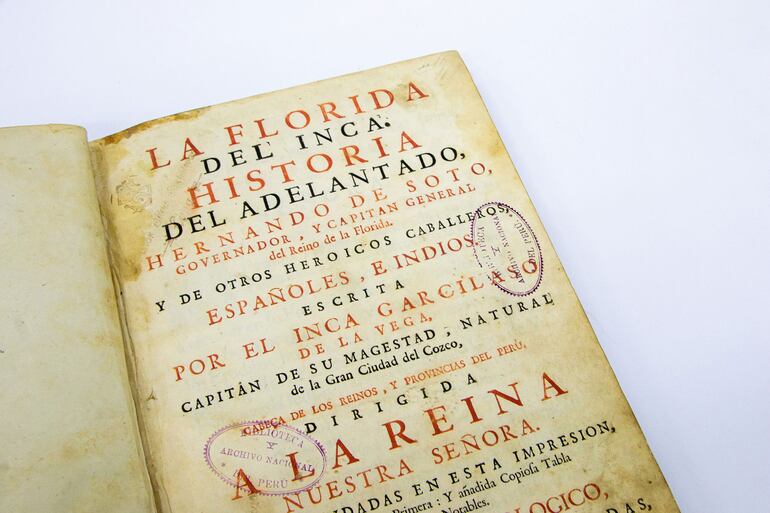 LA FLORIDA
DEL INCA.
HISTORIA
DEL ADELANTADO,
HERNANDO DE SOTO,
GOVERNADOR, Y CAPITAN GENERAL
del Reino de la Florida.
Y DE OTROS HEROICOS CABALLEROS,
ESPAÑOLES, E INDIOS.
ESCRITA
POR EL INCA GARCILASO
DE LA VEGA,
CAPITÁN DE SU MAGESTAD, NATURAL
de la Gran Ciudad del Cozco,
CABEÇA DE LOS REINOS, Y PROVINCIAS DEL PERÙ.
DIRIGIDA
A LA REINA
NUESTRA SEÑORA.
DADAS EN ESTA IMPRESION,
Primera: Y añadida Copiosa Tabla
Notables.
LOGICO,
DAS,
BIBLIOTECA
Y
ARCHIVO NACIONAL
DEL PERÚ
BIBLIOTECA
Y
ARCHIVO NACIONAL
DEL PERÚ